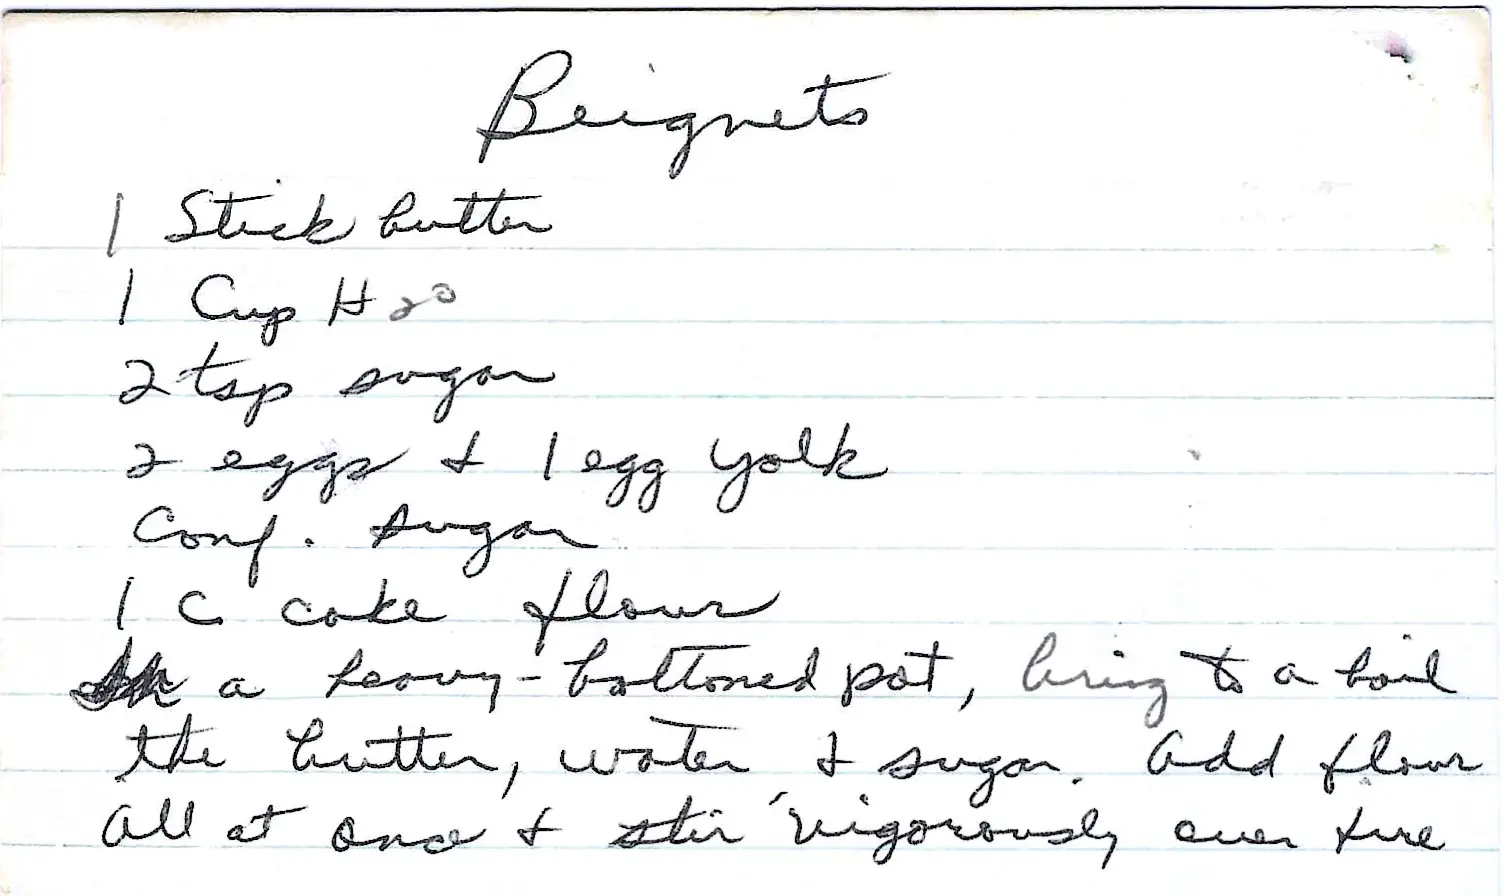 Beignets
1 Stick butter
1 Cup H2O
2 tsp sugar
2 eggs & 1 egg yolk
Conf. sugar
1 C cake flour
In a heavy-bottomed pot, bring to a boil
the butter, water & sugar. Add flour
all at once & stir vigorously over fire